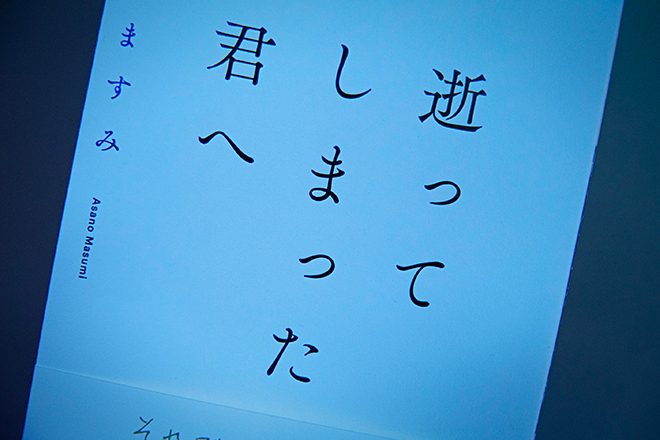 逝って
しまった
君へ
ますみ
Asano Masumi